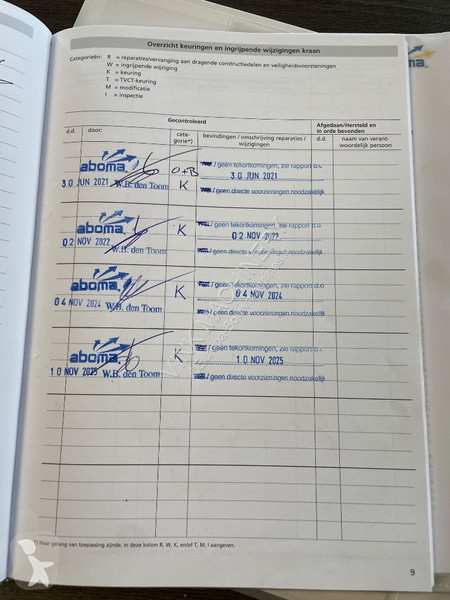 Overzicht keuringen en ingrijpende wijzigingen kraan
Categorieën: R = reparaties/vervanging aan dragende constructiedelen en veiligheidsvoorzieningen
W = Ingrijpende wijziging
K = keuring
T = TVCT-keuring
M = modificatie
I = Inspectie
Gecontroleerd
Afgedaan/Hersteld en in orde bevonden
d.d. door: cate-gorie*) bevindingen / omschrijving reparaties / wijzigingen d.d. naam van verant-woordelijk persoon
aboma. / geen tekortkomingen, zie rapport d.d.
30 JUN 2021 W.B. den Toom K 30 JUN 2021
/ geen directe voorzieningen noodzakelijk
aboma. K / geen tekortkomingen, zie rapport d.d.
02 NOV 2022 02 NOV 2022
/ geen directe voorzieningen noodzakelijk
aboma. K / geen tekortkomingen, zie rapport d.d.
04 NOV 2024 04 NOV 2024
/ geen directe voorzieningen noodzakelijk
aboma. K / geen tekortkomingen, zie rapport d.d.
10 NOV 2025 W.B. den Toom 10 NOV 2025
/ geen directe voorzieningen noodzakelijk
*) Naar gelang van toepassing zijnde, in deze kolom R, W, K, en/of T, M, I aangeven.
9